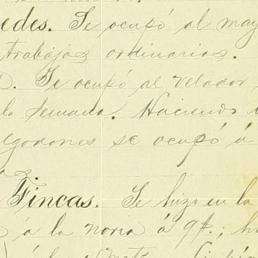 edes. Se ocupó al may
trabajos ordinarios.
Se ocupó al velador,
la semana. Haciendo
lgodones se ocupó á
Fincas. Se hizo en la
a la noria á 9 f.; h